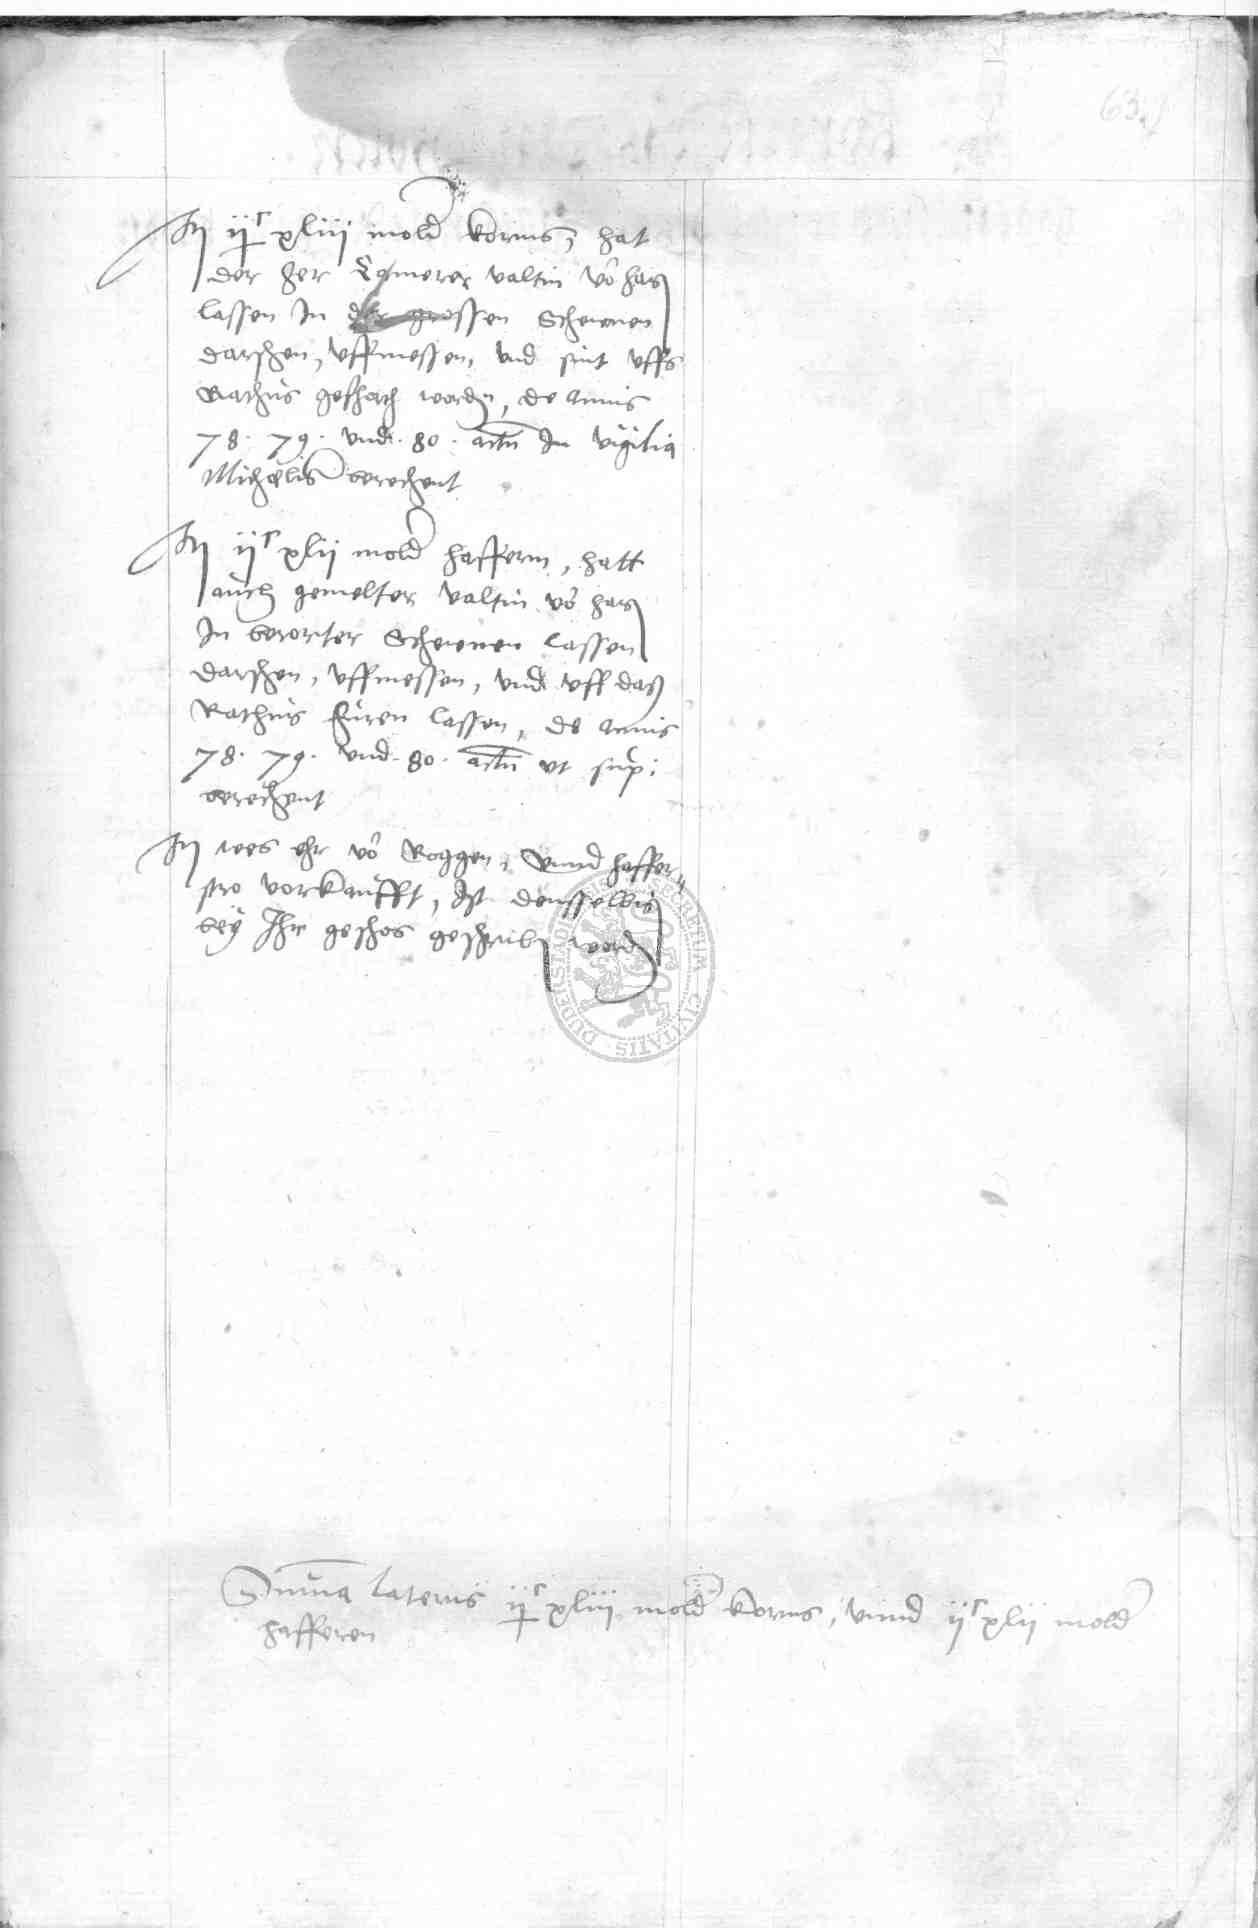 63
It ijᶜ xliij mold korns, hat
der her Camerer valtin vō hag
lassen In der grossen Scheunen
darshen, uffmessen, und sint uffs
Rathus geshach wordn, de annis
78 · 79 · und · 80 · actū In vigilia
Michaelis berechent
It ijᶜ xlij mold haffern, hatt
auch gemelter valtin vō hag
In berorter Scheunen lassen
darshen, uffmessen, und uff das
Rathus füren lassen, de annis
78 · 79 · und · 80 · actū ut sup:
berechent
It wes ehr vō Roggen, unnd haffern
stro vorkaufft, Ist densselbig
bey Ihr geshos geschribn wordn
SECRETUM CIVITATIS DUDERSTADENSIS
Suma lateris ijᶜ xliij mold korns, unnd ijᶜ xlij mold
hafferen